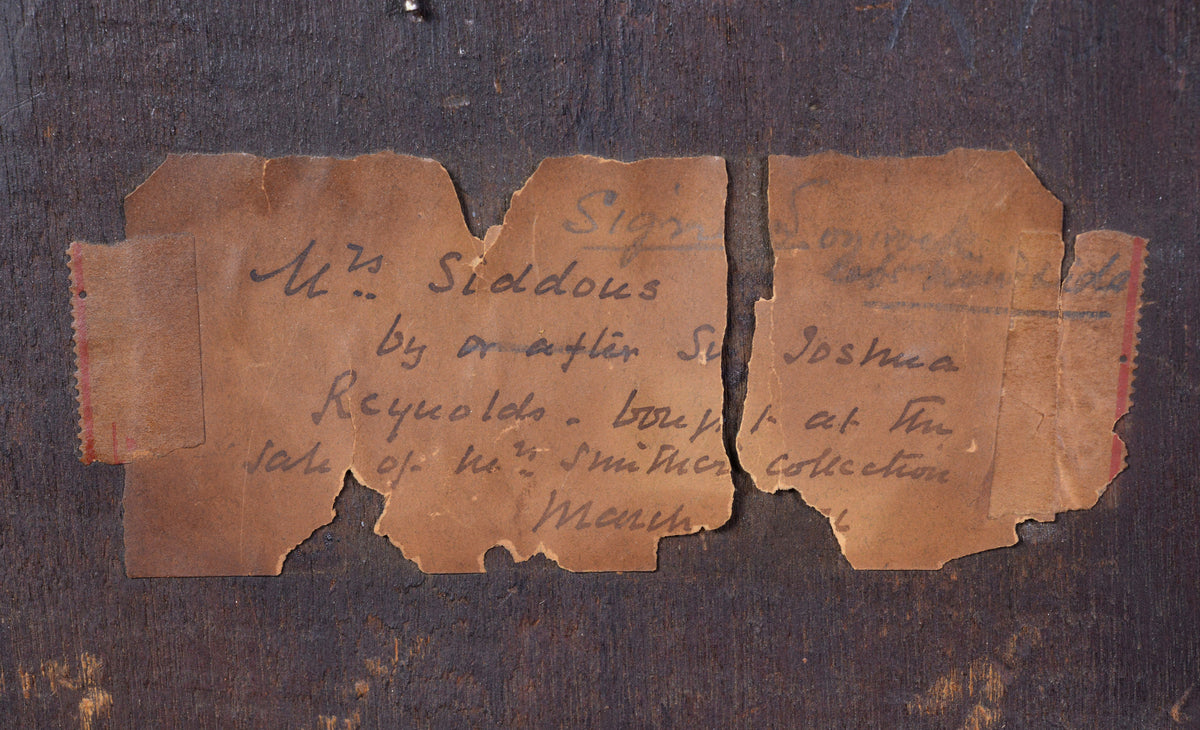 Sign
Mrs. Siddons
by or after Sir Joshua
Reynolds. bought at the
sale of Mrs. Smither collection
March